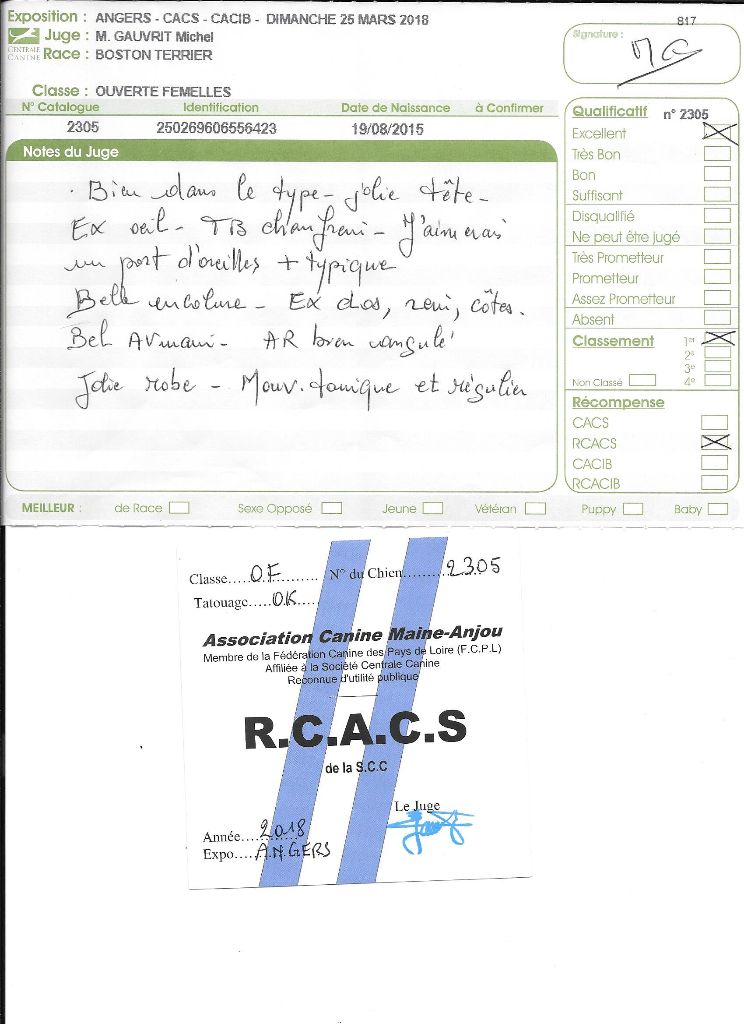 Exposition : ANGERS - CACS - CACIB - DIMANCHE 25 MARS 2018
817
Juge : M. GAUVRIT Michel
CENTRALE CANINE
Race : BOSTON TERRIER
Signature :
Classe : OUVERTE FEMELLES
N° Catalogue Identification Date de Naissance à Confirmer
2305 250269606556423 19/08/2015
Notes du Juge
. Bien dans le type - jolie tête -
Ex oeil - TB chanfrein - J'aimerais
un port d'oreilles + typique
Belle encolure - Ex dos, rein, côtes.
Bel AVmain - AR bien angulé
Jolie robe - Mouv. tonique et régulier
Qualificatif n° 2305
Excellent
Très Bon
Bon
Suffisant
Disqualifié
Ne peut être jugé
Très Prometteur
Prometteur
Assez Prometteur
Absent
Classement 1er
2e
3e
Non Classé 4e
Récompense
CACS
RCACS
CACIB
RCACIB
MEILLEUR : de Race Sexe Opposé Jeune Vétéran Puppy Baby
Classe.....O.F............ N° du Chien..........2305
Tatouage.....OK.....
Association Canine Maine-Anjou
Membre de la Fédération Canine des Pays de Loire (F.C.P.L)
Affiliée à la Société Centrale Canine
Reconnue d'utilité publique
R.C.A.C.S
de la S.C.C
Le Juge
Année....2018
Expo....ANGERS